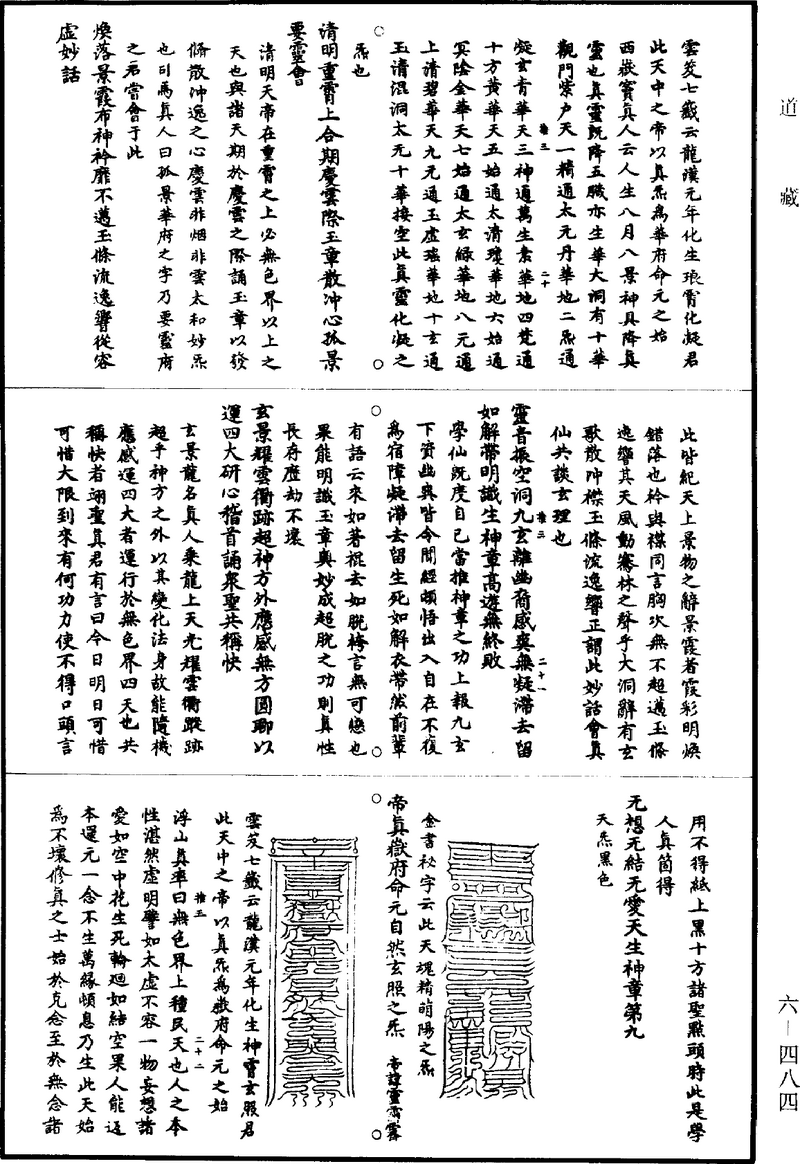 道藏
雲笈七籤云龍漢元年化生琅霄化凝君
此天中之帝以真炁為華府命元之始
西嶽竇真人云人生八月八景神具降真
靈也真靈既降五臟亦生華大洞有十華
觀門紫戶天一精通太元丹華地二炁通
凝玄青華天三神通萬生素華地四梵通
十方黃華天五始通太清瓊華地六始通
冥陰金華天七始通太玄綠華地八元通
上清碧華天九元通玉虛瑤華地十玄通
玉清混洞太元十華接空此真靈化凝之
炁也
清明重霄上合期慶雲際玉章散沖心孤景
要靈會
清明天帝在重霄之上必無色界以上之
天也與諸天期於慶雲之際誦玉章以發
脩散沖逸之心慶雲非烟非雲太和妙炁
也司馬真人曰孤景華府之字乃要靈府
之君嘗會于此
煥落景霞布神衿靡不邁玉條流逸響從容
虛妙話
此皆紀天上景物之辭景霞者霞彩明煥
錯落也衿與襟同言胸次無不超邁玉條
逸響其天風動騫林之聲乎大洞辭有玄
歌散沖襟玉條流逸響正謂此妙話會真
仙共談玄理也
靈音振空洞九玄離幽裔感爽無凝滯去留
如解帶明識生神章高遊無終敗
學仙既度自己當推神章之功上報九玄
下資幽爽皆令聞經頓悟出入自在不復
為宿障凝滯去留生死如解衣帶然前輩
有語云來如著裩去如脫袴言無可戀也
果能明識玉章奧妙成超脫之功則真性
長存歷劫不壞
玄景耀雲衢跡超神方外應感無方圓聊以
運四大研心稽首誦眾聖共稱快
玄景龍名真人乘龍上天光耀雲衢蹤跡
超乎神方之外以其變化法身故能隨機
應感運四大者運行於無色界四天也共
稱快者翊聖真君有言曰今日明日可惜
可惜大限到來有何功力使不得口頭言
用不得紙上黑十方諸聖點頭時此是學
人真箇得
无想无結无愛天生神章第九
天炁黑色
金書秘字云此天塊精萌陽之炁
帝真嶽府命元自然玄照之炁
雲笈七籤云龍漢元年化生神霄玄照君
此天中之帝以真炁為嶽府命元之始
浮山真率曰無色界上種民天也人之本
性湛然虛明譬如太虛不容一物妄想諸
愛如空中花生死輪迴如結空果人能返
本還元一念不生萬緣頓息乃生此天始
為不壞修真之士始於克念至於無念諸
六—四八四